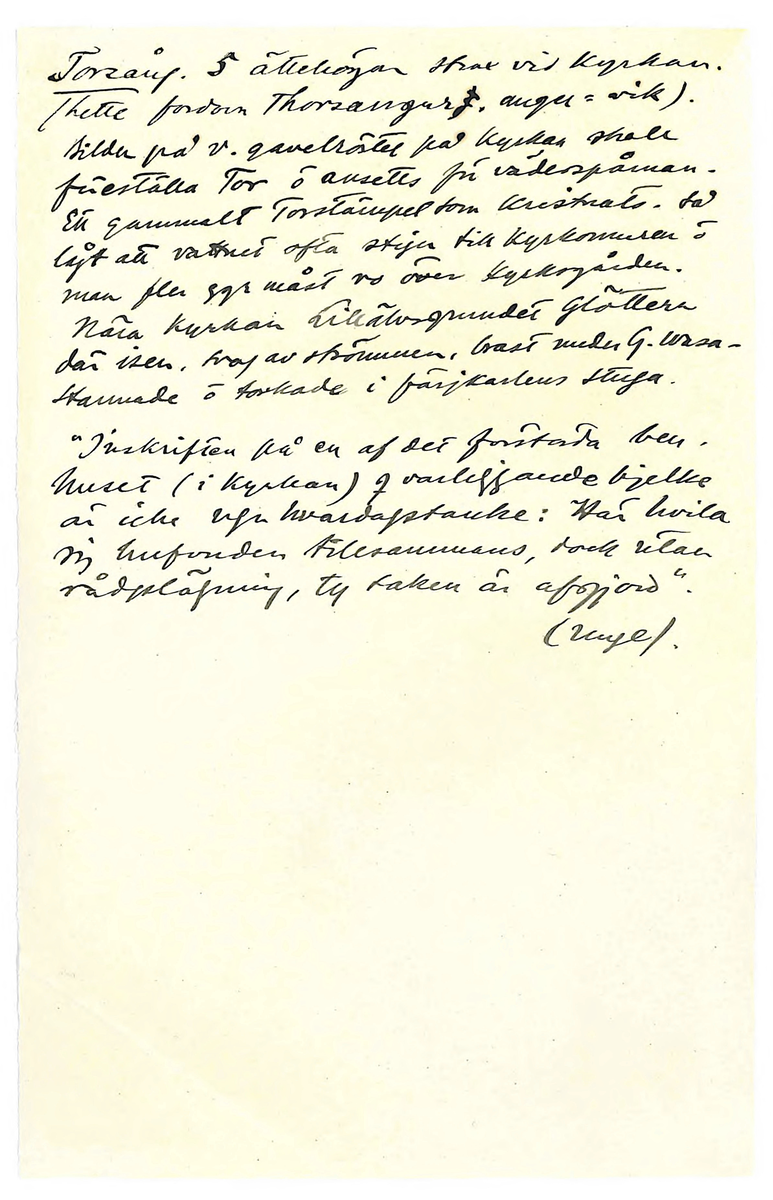 Torsång. 5 ättehögar strax vid Kyrkan.
(hette fordom Thorsangur, anger = wik).
Bilden på v. gavelröstet på Kyrkan skall
föreställa Tor ö ansetts för väderspåman.
Ett gammalt Torstämpel som Kristnats. Så
lågt att vattnet ofta stiger till Kyrkomuren ö
man fler ggr måst ro över Kyrkogården.
Nära Kyrkan Lillälvsgrundet Glöttern
där isen, svag av strömmen, brast under G. Wasa -
stannade ö torkade i färjkarlens stuga.
"Inskriften på en af det förstörda ben-
huset (i Kyrkan) qvarliggande bjelke
är icke ugn hvardagstanke: Här hvila
sig hufvuden tillsammans, dock utan
rådplägning, ty saken är afgjord".